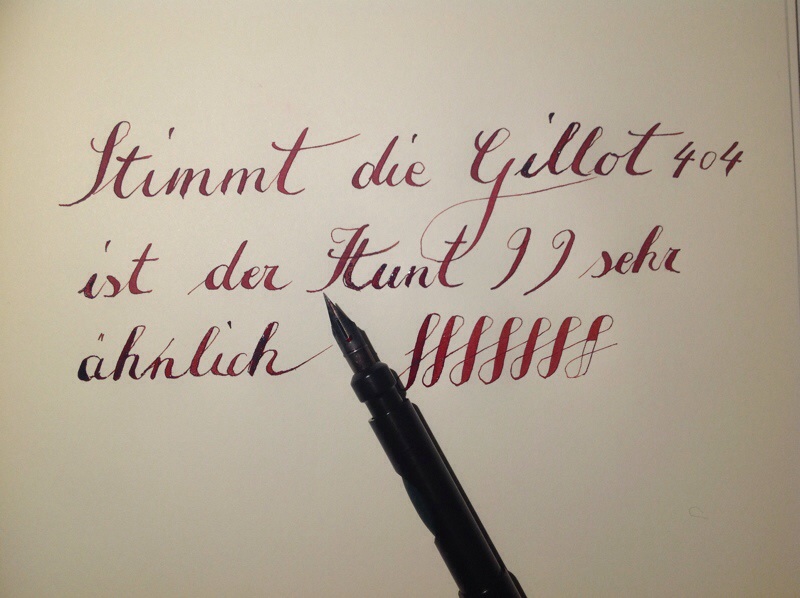 Stimmt die Gillot 404
ist der Hunt 99 sehr
ähnlich